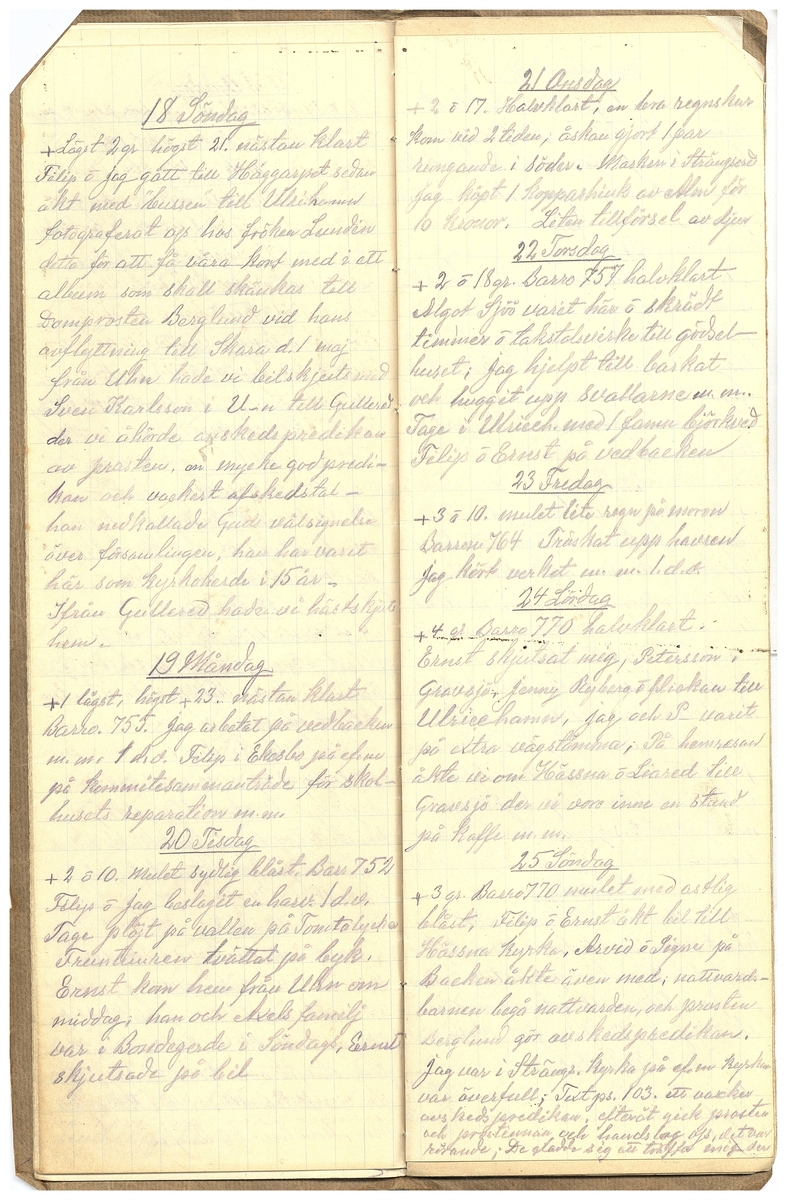 18 Söndag
+ Lägst 2 gr högst 21. nästan klart
Filip ö jag gått till Häggarpet sedan
åkt med "bussen" till Ulrich-mn
fotograferat oss hos fröken Lundén
detta för att få våra kort med i ett
album som skall skänkas till
Domprosten Berglund vid hans
avflyttning till Skara d. 1 maj
från Uhn hade vi bilskjuts med
Sven Karlsson i U-n till Gullered,
der vi åhörde avskedspredikan
av prosten, en mycke god predi-
kan och vackert afskedstal -
han nedkallade Guds välsignelse
över församlingen, han har varit
här som kyrkoherde i 15 år -
Ifrån Gullered hade vi hästskjuts
hem.
19 Måndag
+1 lägst, högst +23. nästan klart
Barro. 755. Jag arbetat på vedbacken
m. m. 1 d.v. Filip i Ekesbo på ef.m
på kommitesammanträde för skol-
husets reparation m.m.
20 Tisdag
+2 ö 10. mulet sydlig blåst. Barr 752
Filip ö jag beslagit en harv. 1 d.v.
Tage plöjt på vallen på
Fruntimren tvättat på byk.
Ernst kom hem från Uhn om
middag; han och Axels familj
var i Bondegerde i Söndags, Ernst
skjutsade på bil
21 Onsdag
+2 ö 17. Halvklart, en bra regnskur
kom vid 2 tiden; åskan gjort 1 par
rungande i söder. Masken i Strängsered
Jag köpt 1 kopparhink av Alm för
10 kronor. Liten tillförsel av djur
22 Torsdag
+ 2 ö 18 gr. Barro 757 halvklart
Algot Sjöö varit här ö skrädt
timmer ö takstolsvirke till gödsel-
huset; jag hjelpt till barkat
och hugget upp svallarne m. m.
Tage i Ulriceh. med 1 famn björkved
Filip ö Ernst på vedbacken
23 Fredag
+3 ö 10. mulet lite regn på moron
Barrom 764 Tröskat upp havren
Jag kört verket m. m. 1. d.v.
24 Lördag
+4 gr Barro 770 halvklart.
Ernst skjutsat mig, Petersson i
Gravsjö, Jenny Ryberg ö flickan till
Ulricehamn, jag och P varit
på extra vägstämma; På hemresan
åkte vi om Hössna ö Liared till
Gravsjö der vi voro inne en stund
på kaffe m. m.
25 Söndag
+3 gr. Barro 770 mulet med ostlig
blåst, Filip ö Ernst åkt bil till
Hössna kyrka, Arvid ö Signe på
Backen åkte även med; nattvards-
barnen begå nattvarden, och prosten
Berglund gör avskedspredikan.
Jag var i Strängs. kyrka på ef.m kyrkan
var överfull; Text ps. 103. ett vacker
avskedspredikan, efteråt gick prosten
och prostinnan och handslog oss, det var
rörande; De gladde sig att träffa mig der